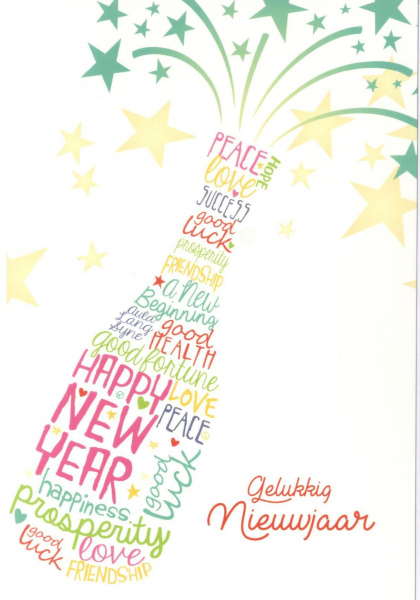 PEACE
HOPE
love
SUCCESS
good
LUCK
prosperity
FRIENDSHIP
a New
Beginning
auld
lang
syne
good
HEALTH
good fortune
HAPPY
LOVE
NEW
PEACE
YEAR
good
LUCK
happiness
prosperity
good
LUCK
love
FRIENDSHIP
Gelukkig
Nieuwjaar